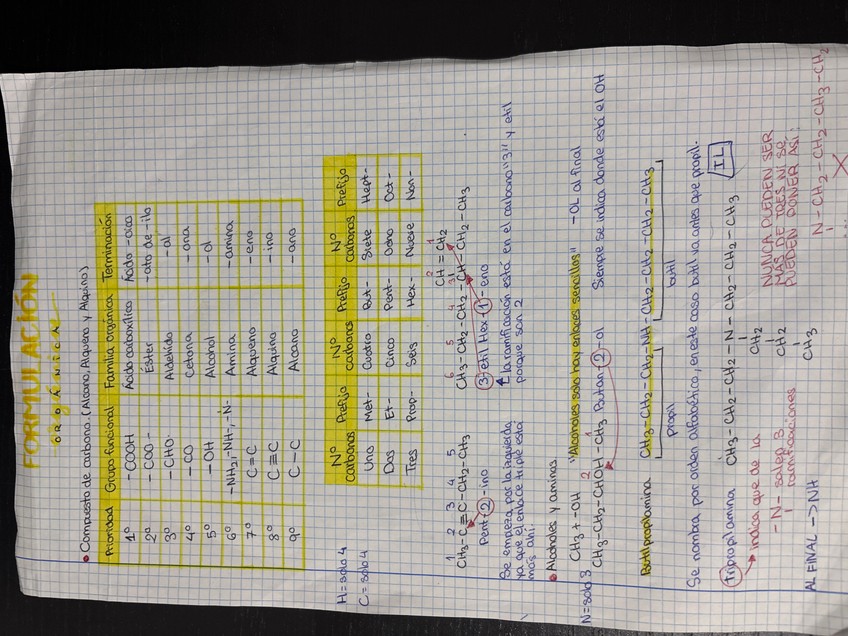 FORMULACIÓN
ORGÁNICA
• Compuesto de carbono. (Alcano, Alqueno y Alquino)
Prioridad Grupo funcional Familia orgánica Terminación
1º -COOH Ácido carboxílico Ácido -oico
2º -COO- Éster -ato de -ilo
3º -CHO- Aldehído -al
4º -CO Cetona -ona
5º -OH Alcohol -ol
6º -NH2,-NH-,-N- Amina -amina
7º C=C Alqueno -eno
8º C≡C Alquino -ino
9º C-C Alcano -ano
H=solo 4
C=solo 4
Nº carbonos Prefijo Nº carbonos Prefijo Nº carbonos Prefijo
Uno Met- Cuatro But- Siete Hept-
Dos Et- Cinco Pent- Ocho Oct-
Tres Prop- Seis Hex- Nueve Non-
1 2 3 4 5
CH3-C≡C-CH2-CH3
Pent-2-ino
Se empieza por la izquierda
ya que el enlace triple está
más ahí.
2 1
CH=CH2
6 5 4 3
CH3-CH2-CH2-CH-CH2-CH3
3 etil Hex-1-eno
↑ la ramificación está en el carbono "3" y etil
porque son 2
• Alcoholes y aminas
N=solo 3
CH3+-OH "Alcoholes solo hay enlaces sencillos" -OL al final
2 1
CH3-CH2-CHOH-CH3 Butan-2-ol Siempre se indica donde está el OH
Butilpropilamina CH3-CH2-CH2-NH-CH2-CH2-CH2-CH3
propil butil
Se nombra por orden alfabético, en este caso butil va antes que propil.
Tripropilamina CH3-CH2-CH2-N-CH2-CH2-CH3 IL
CH2
CH2
CH3
indica que de la
-N- salen 3
ramificaciones
NUNCA PUEDEN SER
MÁS DE TRES NI SE
PUEDEN PONER ASÍ:
N-CH2-CH2-CH3-CH2
X
AL FINAL -> NH